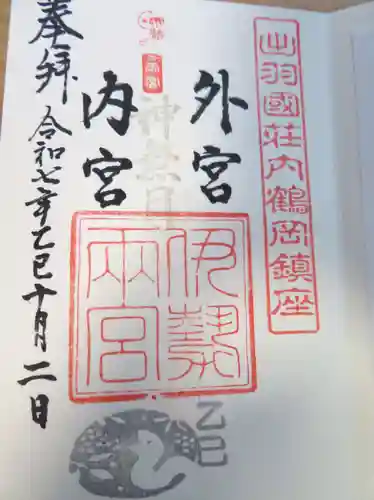 出羽國荘内鶴岡鎮座
外宮
内宮
伊勢
両宮
奉拝
令和七年乙巳十月二日
乙巳